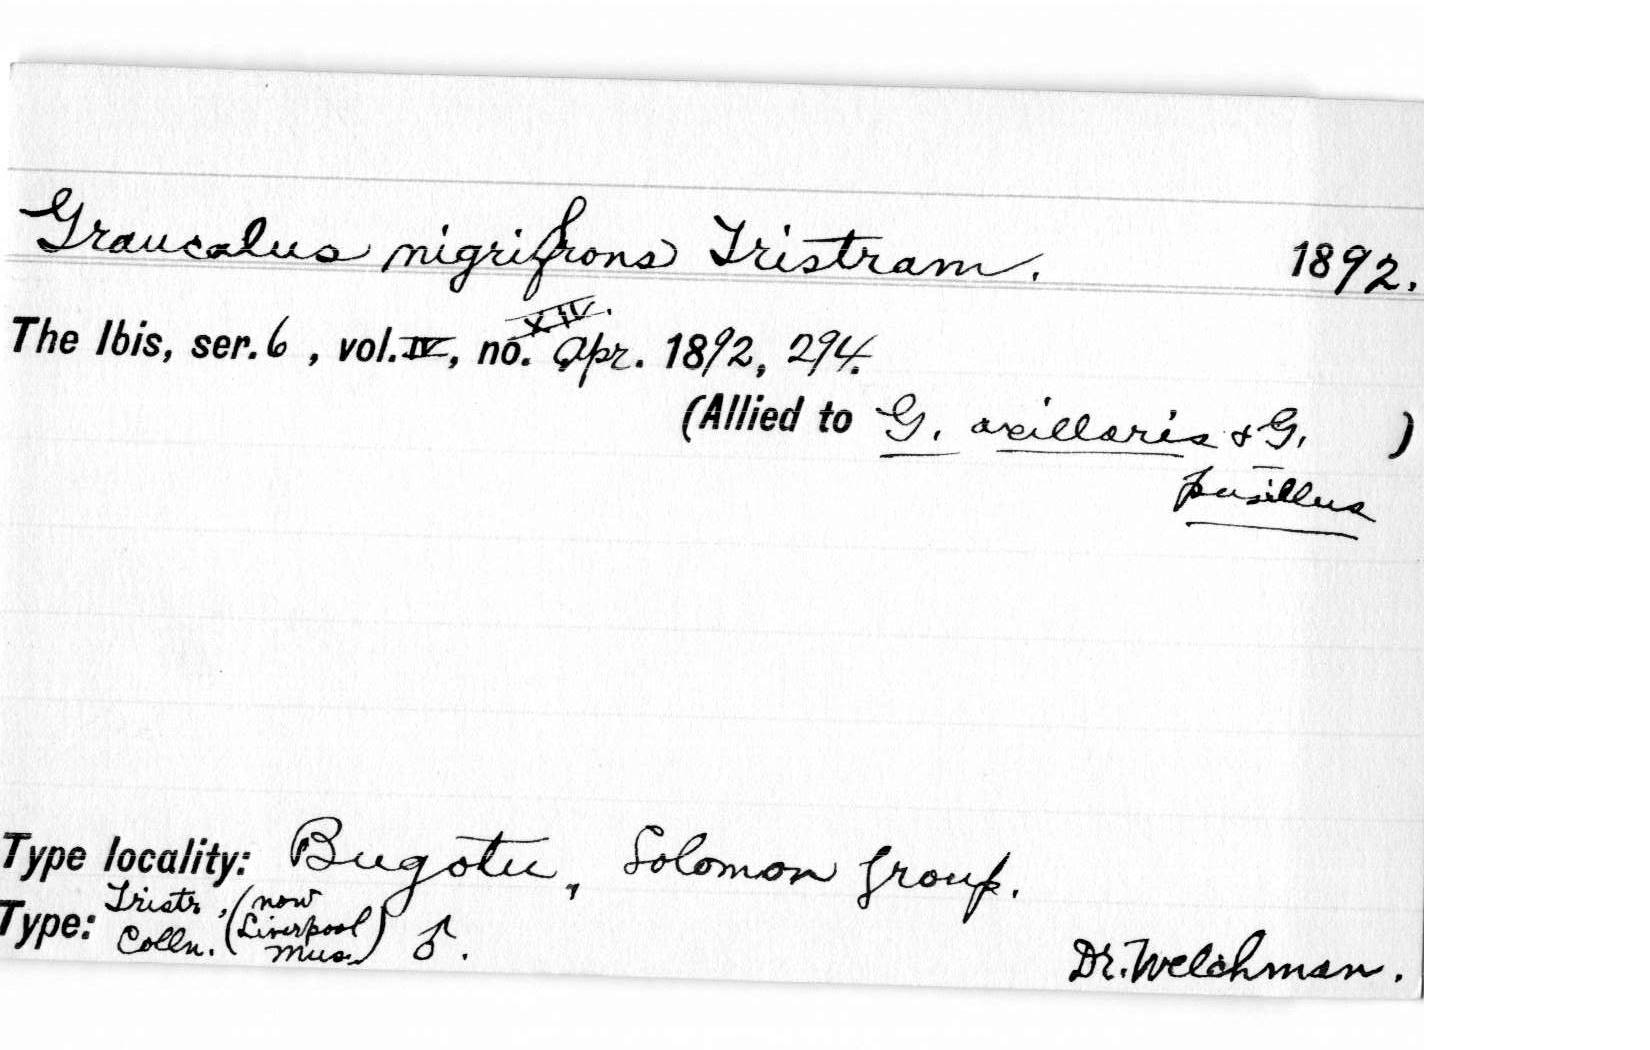 Graucalus nigrifrons Tristram. 1892.
The Ibis, ser. 6, vol. IV, no. XIV. Apr. 1892, 294.
(Allied to G. axillaris & G. )
pusillus
Type locality: Bugotu, Solomon Group.
Type: Tristr. Colln. (now Liverpool Mus.) ♂.
Dr. Welchman.